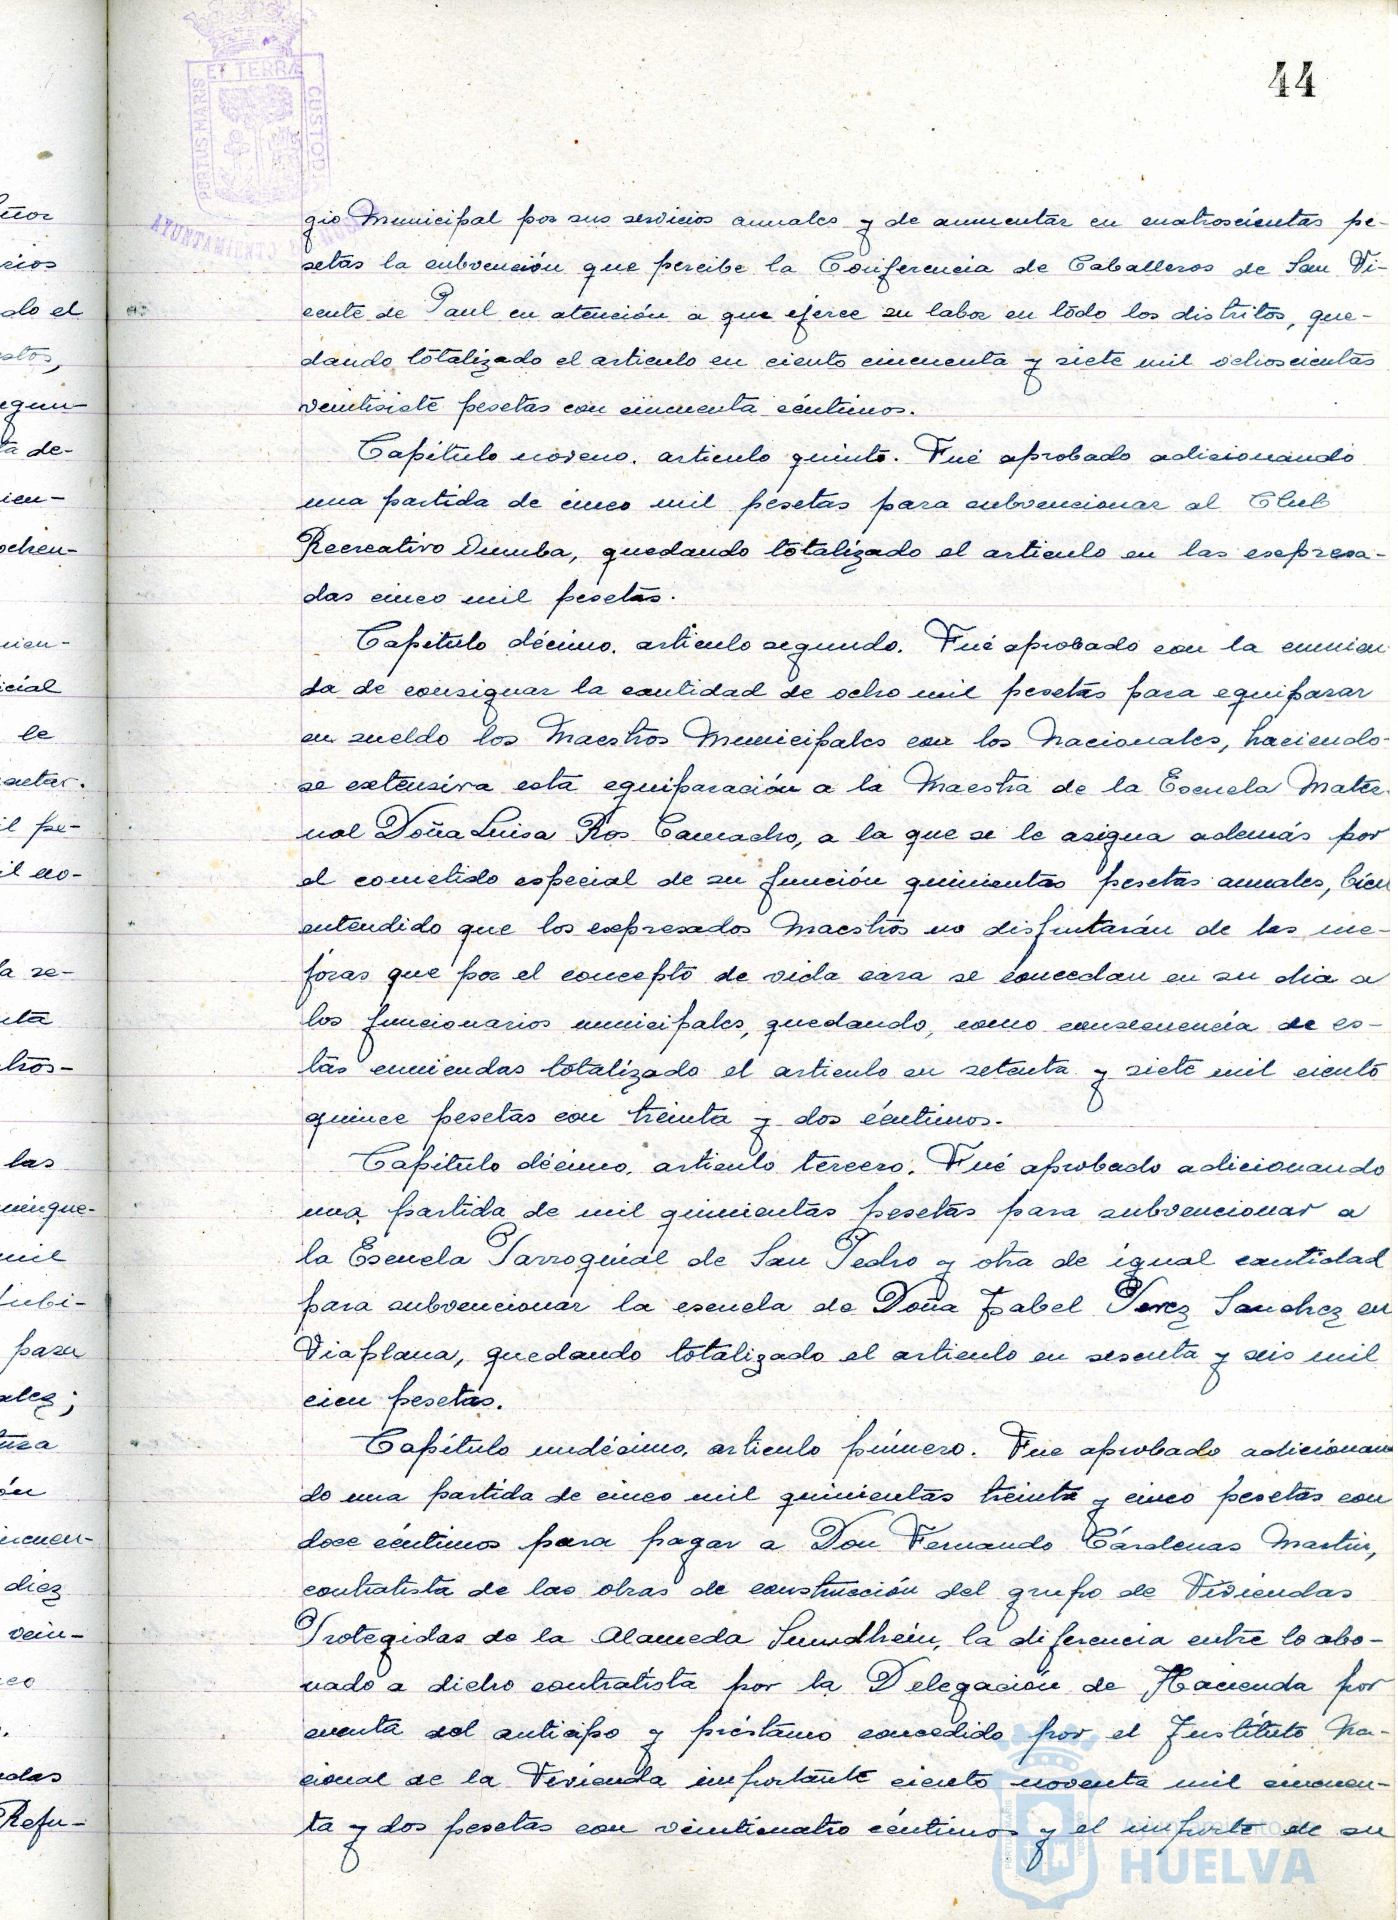 44
PORTUS MARIS ET TERRÆ CUSTODIA
AYUNTAMIENTO
gio Municipal por sus servicios anuales y de aumentar en cuatroscientas pe-
setas la subvención que percibe la Conferencia de Caballeros de San Vi-
cente de Paul en atención a que ejerce su labor en todo los distritos, que-
dando totalizado el articulo en ciento cincuenta y siete mil ochoscientas
veintisiete pesetas con cincuenta céntimos.
Capítulo noveno. articulo quinto. Fué aprobado adicionando
una partida de cinco mil pesetas para subvencionar al Club
Recreativo Onuba, quedando totalizado el articulo en las expresa-
das cinco mil pesetas.
Capítulo décimo. articulo segundo. Fué aprobado con la enmien
da de consignar la cantidad de ocho mil pesetas para equiparar
en sueldo los Maestros Municipales con los Nacionales, haciendo-
se extensiva esta equiparación a la Maestra de la Escuela Mater-
nal Doña Luisa Ros Camacho, a la que se le asigna además por
el cometido especial de su función quinientas pesetas anuales, bien
entendido que los expresados Maestros no disfrutarán de las me-
joras que por el concepto de vida cara se concedan en su dia a
los funcionarios municipales, quedando, como consecuencia de es-
tas enmiendas totalizado el articulo en setenta y siete mil ciento
quince pesetas con treinta y dos céntimos.
Capítulo décimo. articulo tercero. Fué aprobado adicionando
una partida de mil quinientas pesetas para subvencionar a
la Escuela Parroquial de San Pedro y otra de igual cantidad
para subvencionar la escuela de Doña Isabel Perez Sanchez en
Viaplana, quedando totalizado el articulo en sesenta y seis mil
cien pesetas.
Capítulo undécimo. articulo primero. Fue aprobado adicionan
do una partida de cinco mil quinientas treinta y cinco pesetas con
doce céntimos para pagar a Don Fernando Cárdenas Martin,
contratista de las obras de construcción del grupo de Viviendas
Protegidas de la Alameda Sundhein, la diferencia entre lo abo-
nado a dicho contratista por la Delegación de Hacienda por
cuenta del anticipo y préstamo concedido por el Instituto Na-
cional de la Vivienda importante ciento noventa mil cincuen-
ta y dos pesetas con veinticuatro céntimos y el importe de su
HUELVA